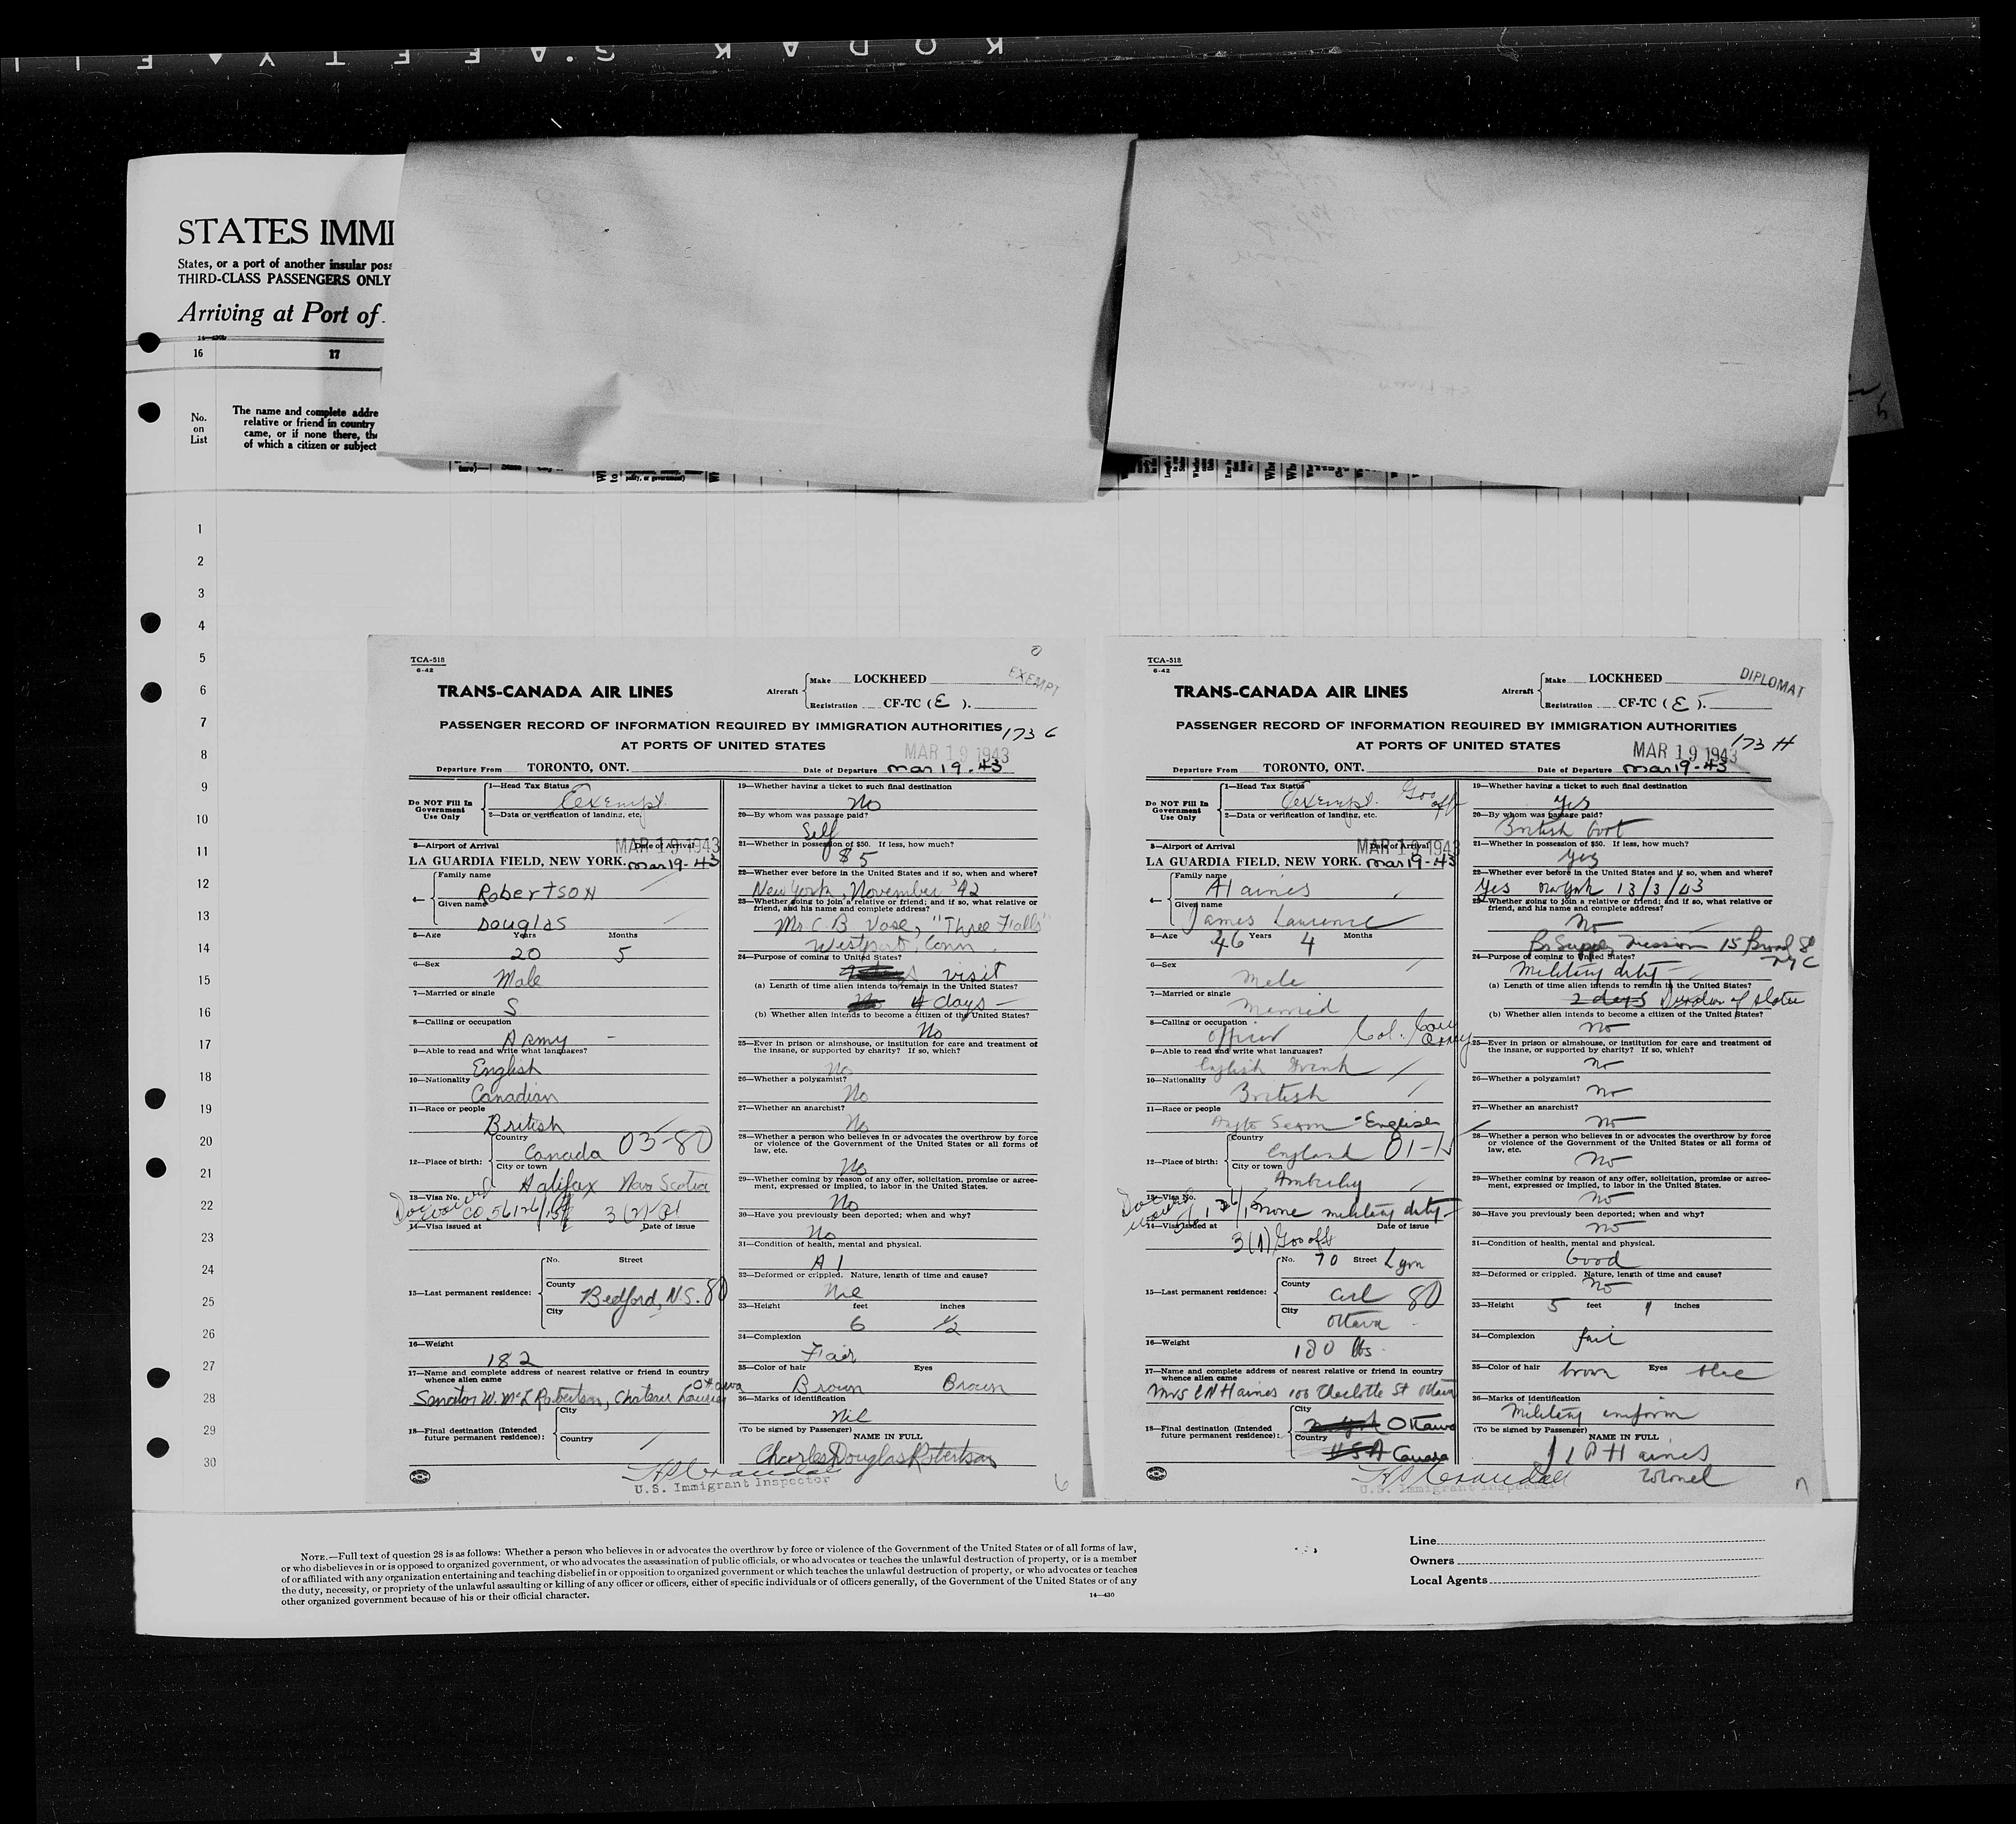 KODAK SAFETY FIL
STATES IMMI
States, or a port of another insular poss
THIRD-CLASS PASSENGERS ONLY
Arriving at Port of
16 17
No. on List
The name and complete addre
relative or friend in country
came, or if none there, the
of which a citizen or subject
1
2
3
4
5
6
7
8
9
10
11
12
13
14
15
16
17
18
19
20
21
22
23
24
25
26
27
28
29
30
TCA-518
6-42
EXEMPT
TRANS-CANADA AIR LINES
Aircraft Make LOCKHEED
Registration CF-TC (E).
PASSENGER RECORD OF INFORMATION REQUIRED BY IMMIGRATION AUTHORITIES
173 G
AT PORTS OF UNITED STATES
MAR 19 1943
Departure From TORONTO, ONT. Date of Departure Mar 19-43
Do NOT Fill In Government Use Only
1—Head Tax Status Exempt
2—Data or verification of landing, etc.
3—Airport of Arrival Date of Arrival
MAR 19 1943
LA GUARDIA FIELD, NEW YORK. Mar 19-43
4— Family name Robertson
Given name Douglas
5—Age Years Months
20 5
6—Sex
Male
7—Married or single
S
8—Calling or occupation
Army
9—Able to read and write what languages?
English
10—Nationality
Canadian
11—Race or people
British
12—Place of birth: Country Canada 03-80
City or town Halifax Nova Scotia
13—Visa No.
3(2)
14—Visa issued at Date of issue
15—Last permanent residence: No. Street
County
City
Bedford, N.S. 80
16—Weight
182
17—Name and complete address of nearest relative or friend in country whence alien came
Senator W. McL Robertson, Chateau Laurier Ottawa
18—Final destination (Intended future permanent residence): City
Country
19—Whether having a ticket to such final destination
No
20—By whom was passage paid?
Self
21—Whether in possession of $50. If less, how much?
$5
22—Whether ever before in the United States and if so, when and where?
New York, November '42
23—Whether going to join a relative or friend; and if so, what relative or friend, and his name and complete address?
Mr. C. B. Vose, "Three Falls"
Westport, Conn.
24—Purpose of coming to United States?
visit
(a) Length of time alien intends to remain in the United States?
4 days
(b) Whether alien intends to become a citizen of the United States?
No
25—Ever in prison or almshouse, or institution for care and treatment of the insane, or supported by charity? If so, which?
No
26—Whether a polygamist?
No
27—Whether an anarchist?
No
28—Whether a person who believes in or advocates the overthrow by force or violence of the Government of the United States or all forms of law, etc.
No
29—Whether coming by reason of any offer, solicitation, promise or agreement, expressed or implied, to labor in the United States.
No
30—Have you previously been deported; when and why?
No
31—Condition of health, mental and physical.
A 1
32—Deformed or crippled. Nature, length of time and cause?
Nil
33—Height feet inches
6 1/2
34—Complexion
Fair
35—Color of hair Eyes
Brown Brown
36—Marks of identification
Nil
(To be signed by Passenger)
NAME IN FULL
Charles Douglas Robertson
U.S. Immigrant Inspector
6
TCA-518
6-42
DIPLOMAT
TRANS-CANADA AIR LINES
Aircraft Make LOCKHEED
Registration CF-TC (E).
PASSENGER RECORD OF INFORMATION REQUIRED BY IMMIGRATION AUTHORITIES
173 H
AT PORTS OF UNITED STATES
MAR 19 1943
Departure From TORONTO, ONT. Date of Departure Mar 19-43
Do NOT Fill In Government Use Only
1—Head Tax Status Exempt. Gov off
2—Data or verification of landing, etc.
3—Airport of Arrival Date of Arrival
MAR 19 1943
LA GUARDIA FIELD, NEW YORK. Mar 19-43
4— Family name Haines
Given name James Laurence
5—Age 46 Years 4 Months
6—Sex
Male
7—Married or single
Married
8—Calling or occupation
Officer Col.
9—Able to read and write what languages?
English French
10—Nationality
British
11—Race or people
Anglo Saxon - English
12—Place of birth: Country England
City or town
13—Visa No.
none military duty
14—Visa issued at Date of issue
3(1) Gov off
15—Last permanent residence: No. 70 Street Lyon
County Carl 80
City Ottawa
16—Weight
180 lbs
17—Name and complete address of nearest relative or friend in country whence alien came
Mrs E N Haines 100 Charlotte St Ottawa
18—Final destination (Intended future permanent residence): City Ottawa
Country USA Canada
19—Whether having a ticket to such final destination
Yes
20—By whom was passage paid?
British Govt
21—Whether in possession of $50. If less, how much?
Yes
22—Whether ever before in the United States and if so, when and where?
Yes New York 13/3/43
23—Whether going to join a relative or friend; and if so, what relative or friend, and his name and complete address?
No
Br Supply Mission 15 Broad St
NYC
24—Purpose of coming to United States?
Military duty
(a) Length of time alien intends to remain in the United States?
2 days Duration of status
(b) Whether alien intends to become a citizen of the United States?
No
25—Ever in prison or almshouse, or institution for care and treatment of the insane, or supported by charity? If so, which?
No
26—Whether a polygamist?
No
27—Whether an anarchist?
No
28—Whether a person who believes in or advocates the overthrow by force or violence of the Government of the United States or all forms of law, etc.
No
29—Whether coming by reason of any offer, solicitation, promise or agreement, expressed or implied, to labor in the United States.
No
30—Have you previously been deported; when and why?
No
31—Condition of health, mental and physical.
Good
32—Deformed or crippled. Nature, length of time and cause?
No
33—Height 5 feet inches
34—Complexion
fair
35—Color of hair brown Eyes blue
36—Marks of identification
Military uniform
(To be signed by Passenger)
NAME IN FULL
J L P Haines
Colonel
U.S. Immigrant Inspector
NOTE.—Full text of question 28 is as follows: Whether a person who believes in or advocates the overthrow by force or violence of the Government of the United States or of all forms of law,
or who disbelieves in or is opposed to organized government, or who advocates the assassination of public officials, or who advocates or teaches the unlawful destruction of property, or is a member
of or affiliated with any organization entertaining and teaching disbelief in or opposition to organized government or which teaches the unlawful destruction of property, or who advocates or teaches
the duty, necessity, or propriety of the unlawful assaulting or killing of any officer or officers, either of specific individuals or of officers generally, of the Government of the United States or of any
other organized government because of his or their official character.
14—430
Line
Owners
Local Agents